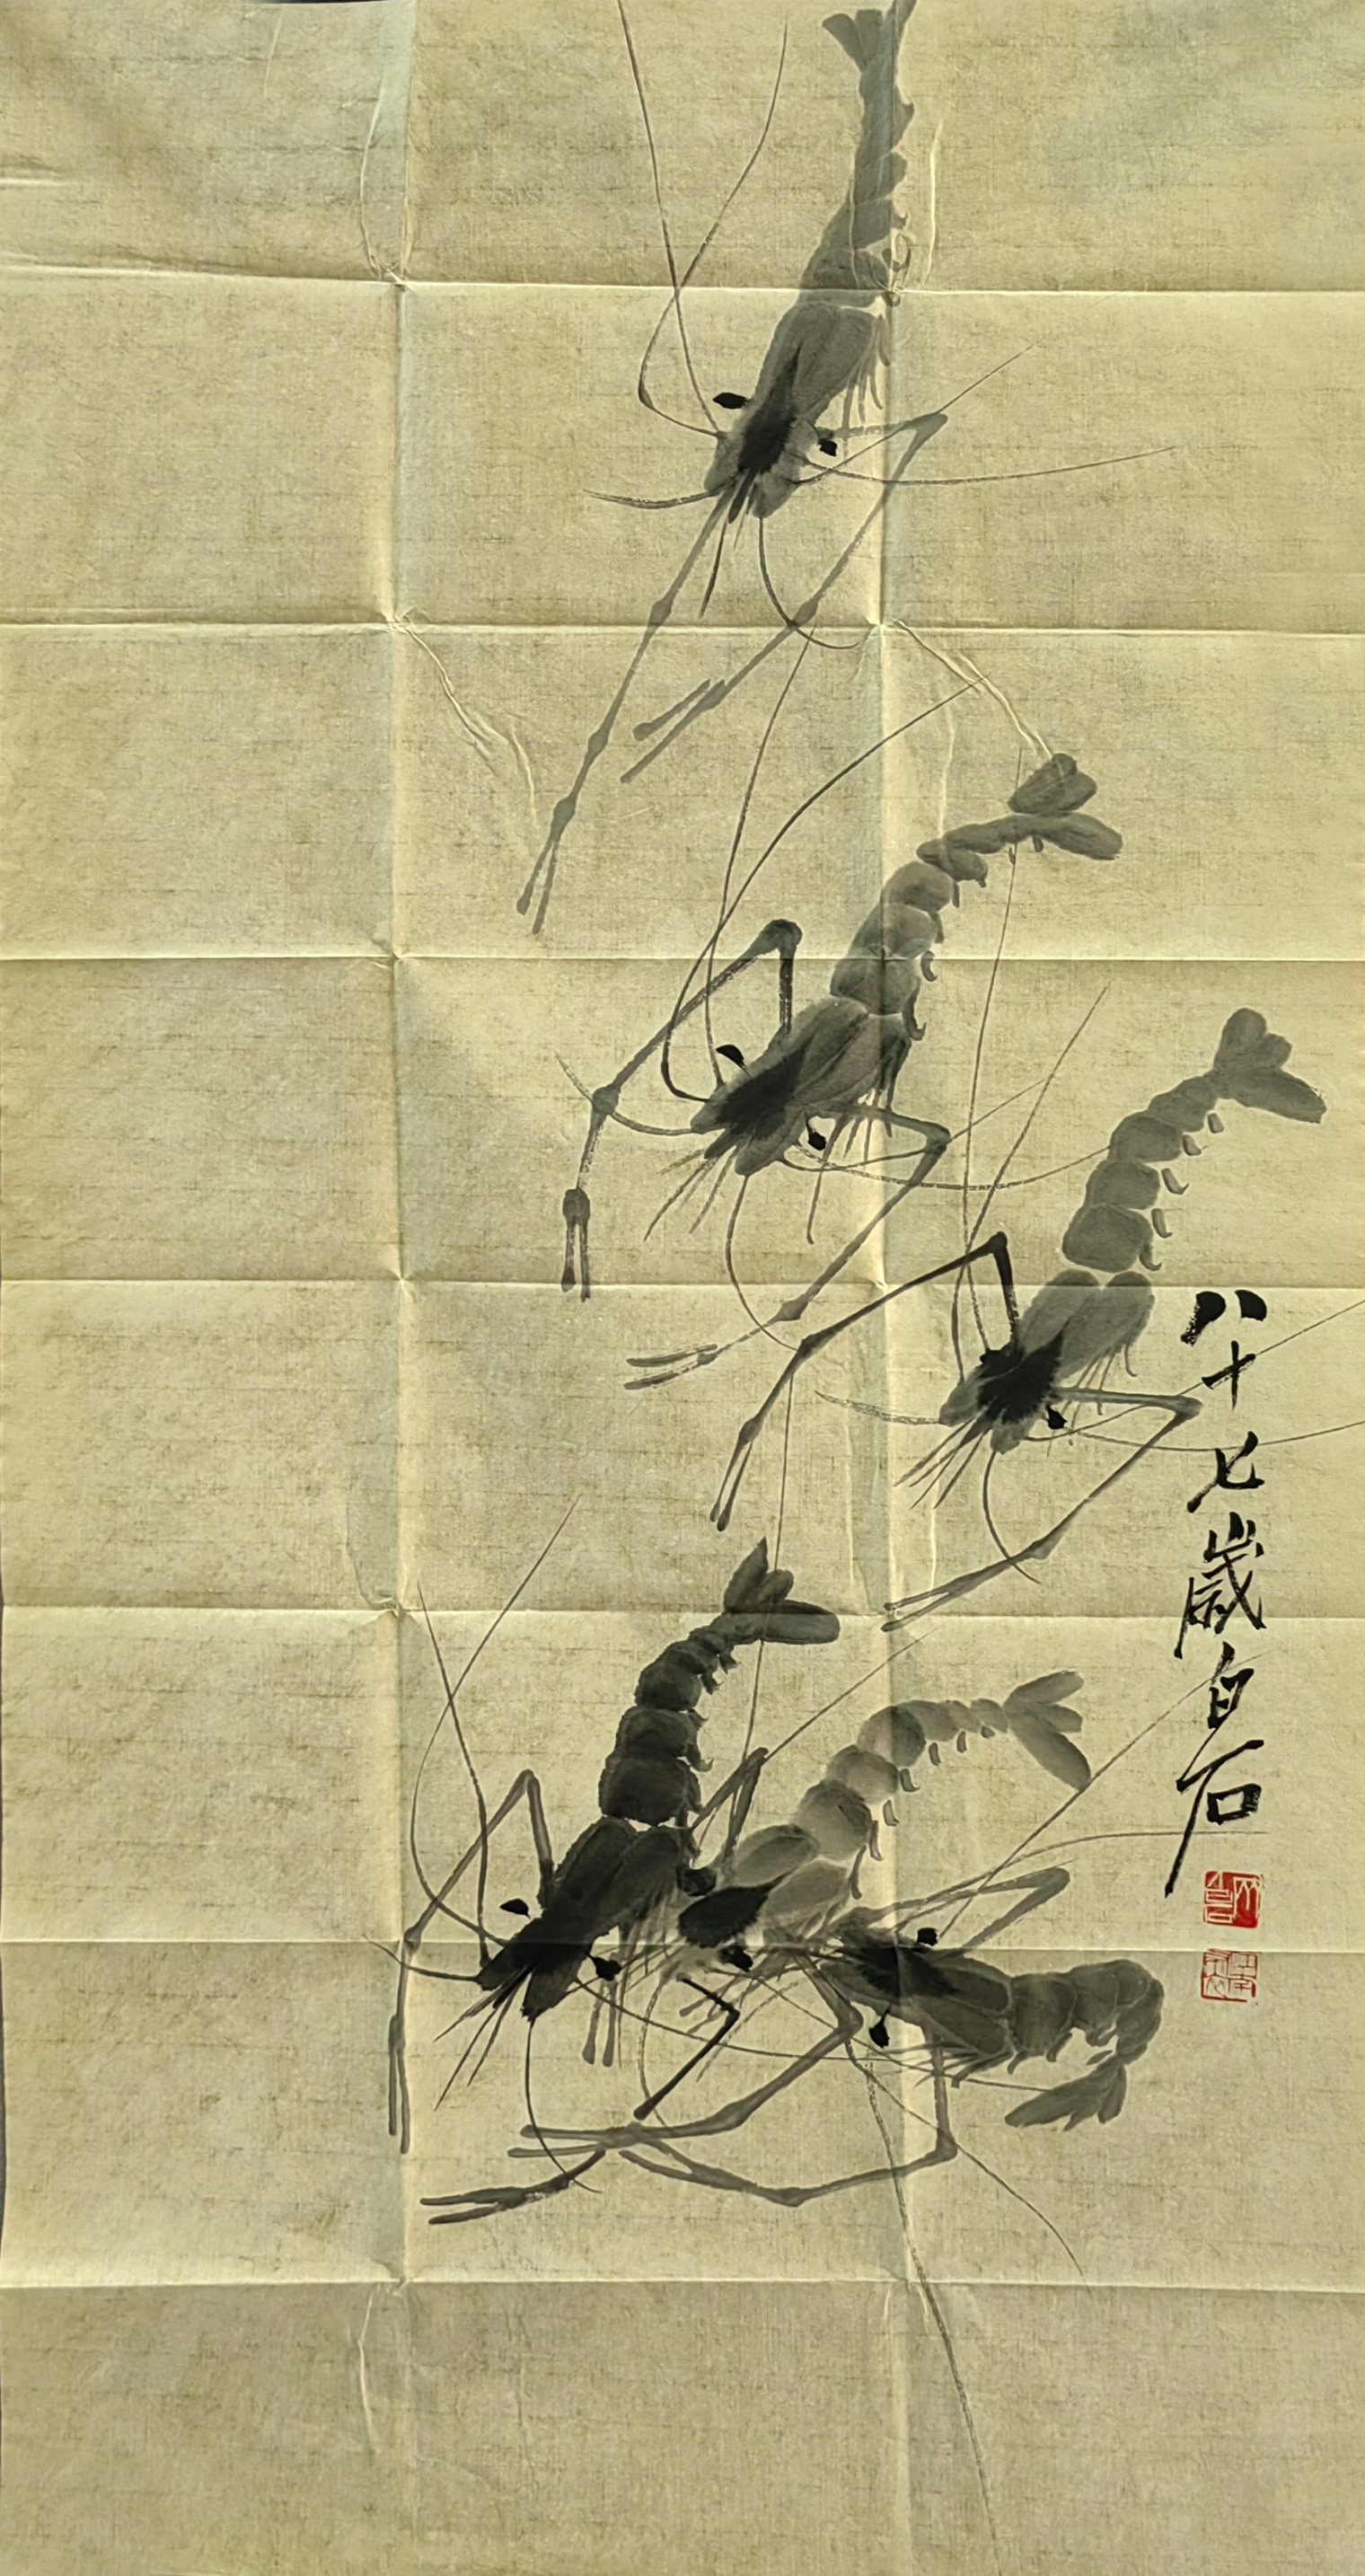 八十七歲白石